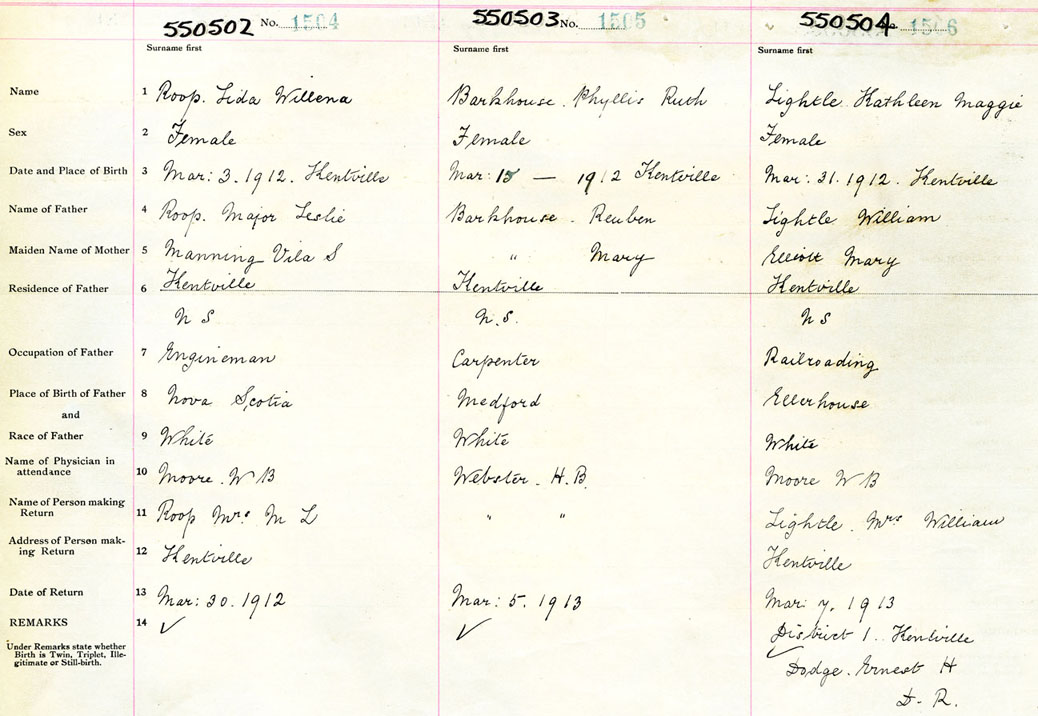 550502 No. 1504 550503 No. 1505 550504 1506
Surname first Surname first Surname first
Name 1 Roop. Lida Willena Barkhouse. Phyllis Ruth Lightle Kathleen Maggie
Sex 2 Female Female Female
Date and Place of Birth 3 Mar: 3. 1912. Kentville Mar: 15 — 1912 Kentville Mar: 31. 1912. Kentville
Name of Father 4 Roop. Major Leslie Barkhouse. Reuben Lightle William
Maiden Name of Mother 5 Manning Vila S " Mary Elliott Mary
Residence of Father 6 Kentville Kentville Kentville
N S N.S. N S
Occupation of Father 7 Engineman Carpenter Railroading
Place of Birth of Father 8 Nova Scotia Medford Ellerhouse
and
Race of Father 9 White White White
Name of Physician in
attendance 10 Moore. W B Webster. H.B. Moore W B
Name of Person making
Return 11 Roop Mrs M L " " Lightle. Mrs William
Address of Person mak-
ing Return 12 Kentville Kentville
Date of Return 13 Mar: 30. 1912 Mar: 5. 1913 Mar: 7, 1913
REMARKS 14 ✓ ✓ District 1. Kentville
Under Remarks state whether
Birth is Twin, Triplet, Ille-
gitimate or Still-birth. ✓ Dodge. Ernest H
D. R.